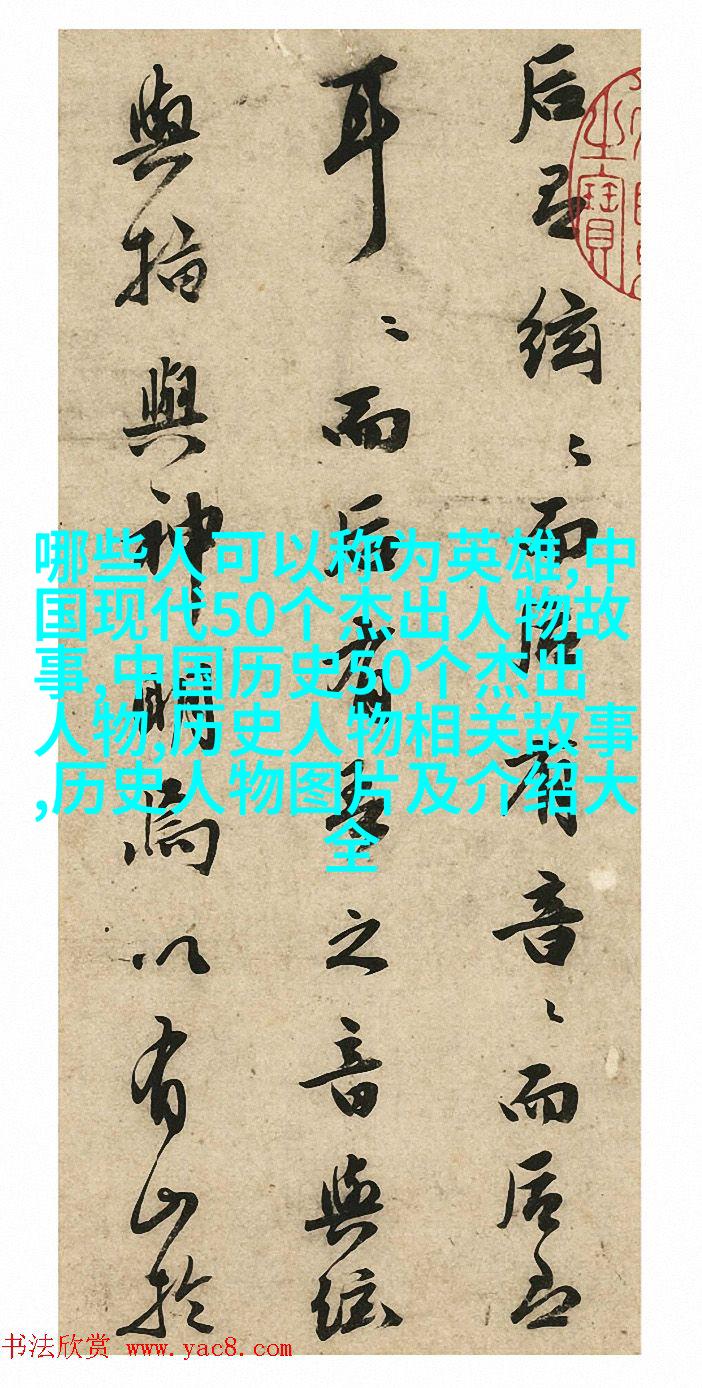 后絃〻而后有音〻而后
耳〻而后有之音與絃
與指與神明焉以有山於
之寶
哪些人可以称为英雄,中
国现代50个杰出人物故
事,中国历史50个杰出
人物,历史人物相关故事
,历史人物图片及介绍大
全
书法欣赏 www.yac8.com